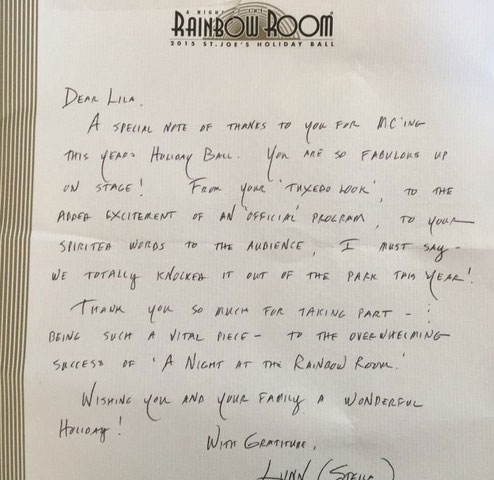 A NIGHT
RAINBOW ROOM
2015 ST. JOE'S HOLIDAY BALL
DEAR LILA,
A SPECIAL NOTE OF THANKS TO YOU FOR MC'ING
THIS YEARS HOLIDAY BALL. YOU ARE SO FABULOUS UP
ON STAGE! FROM YOUR 'TUXEDO LOOK', TO THE
ADDED EXCITEMENT OF AN 'OFFICIAL' PROGRAM, TO YOUR
SPIRITED WORDS TO THE AUDIENCE, I MUST SAY -
WE TOTALLY KNOCKED IT OUT OF THE PARK THIS YEAR!
THANK YOU SO MUCH FOR TAKING PART - :
BEING SUCH A VITAL PIECE - TO THE OVERWHELMING
SUCCESS OF 'A NIGHT AT THE RAINBOW ROOM.'
WISHING YOU AND YOUR FAMILY A WONDERFUL
HOLIDAY!
WITH GRATITUDE,
LYNN